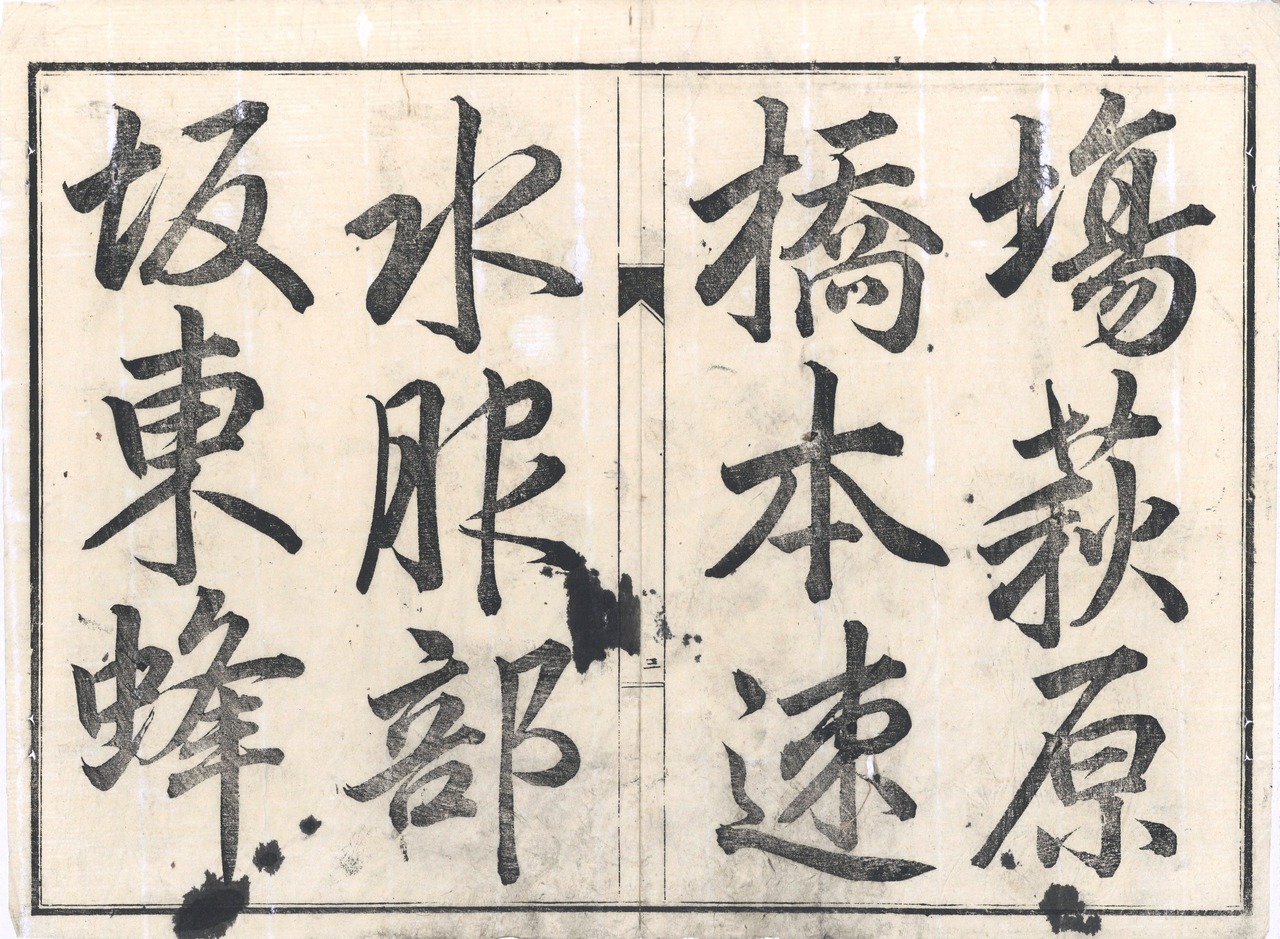 塲萩原
橋本速
水服部
坂東蜂
三